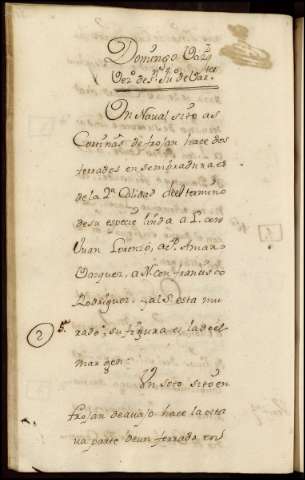 Domingo
Vez.º de S.n Ju.º de Var.tes
Un Naval sito as
Cortiñas de frojan hace dos
ferrados en sembradura es
de la 2ª Calidad del termino
de su especie linda a L. con
Juan Lorenzo, a P. Amaro
Vazquez, a N. con francisco
Rodriguez, y al S. esta mu
rado: su figura es la del
margen
2
Un soto sito en
frojan de avajo hace la octa
va parte de un ferrado en